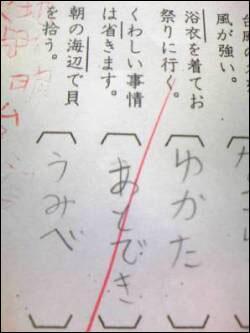 風が強い。
浴衣を着てお
祭りに行く。
ゆかた
くわしい事情
は省きます。
あとでき
朝の海辺で貝
を拾う。
うみべ